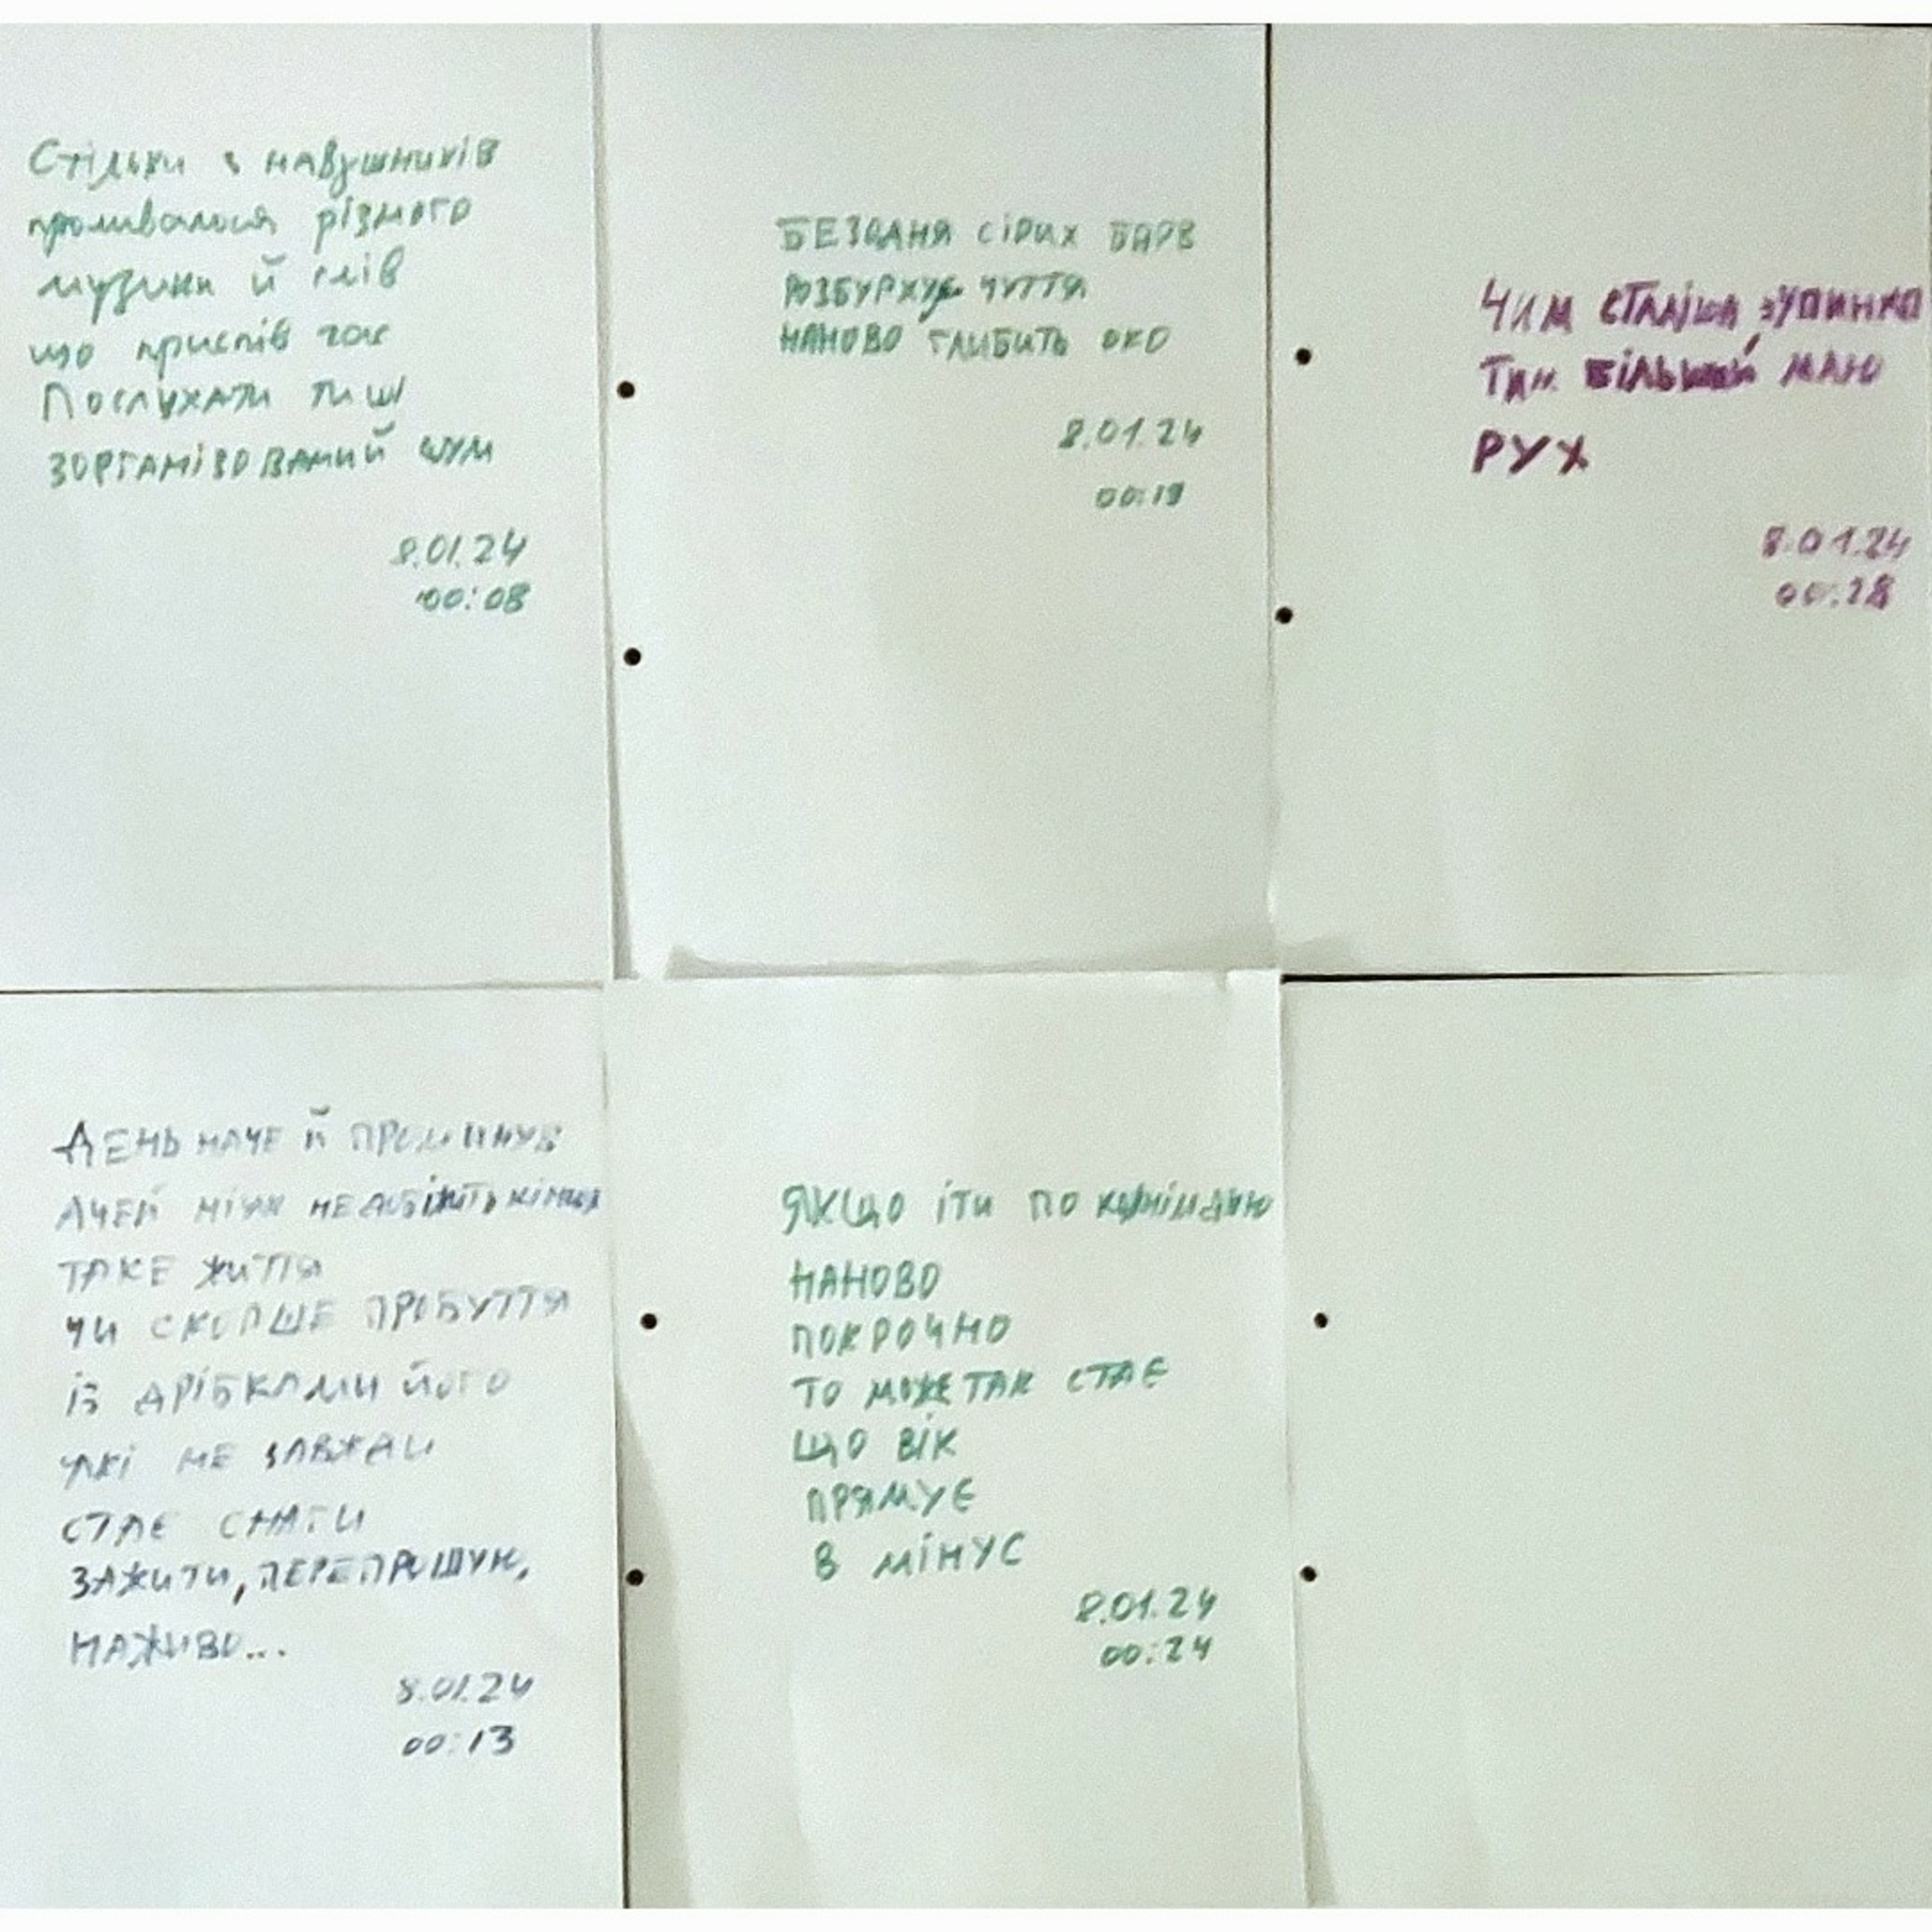 Стільки з навушників
проливалося різного
музики й слів
що приспів час
Послухати тиші
зорганізований шум
8.01.24
00:08
БЕЗОДНЯ СІРИХ БАРВ
РОЗБУРХУЄ ЧУТТЯ
НАНОВО ГЛИБИТЬ ОКО
8.01.24
00:19
ЧИМ СТАЛІША ЗУПИНКА
ТИМ БІЛЬШИЙ МАЮ
РУХ
8.01.24
00:28
ДЕНЬ НАЧЕ Й ПРОМИНУВ
АЧЕЙ НІЯК НЕ ДОБІЖИТЬ КІНЦЯ
ТАКЕ ЖИТТЯ
ЧИ СКОРШЕ ПРОБУТТЯ
ІЗ ДРІБКАМИ ЙОГО
ЯКІ НЕ ЗАВЖДИ
СТАЄ СНАГИ
ЗАЖИТИ, ПЕРЕПРОШУЮ,
НАЖИВО...
8.01.24
00:13
ЯКЩО ІТИ ПО
НАНОВО
ПОКРОЧНО
ТО МОЖЕ ТАК СТАЄ
ЩО ВІК
ПРЯМУЄ
В МІНУС
8.01.24
00:24